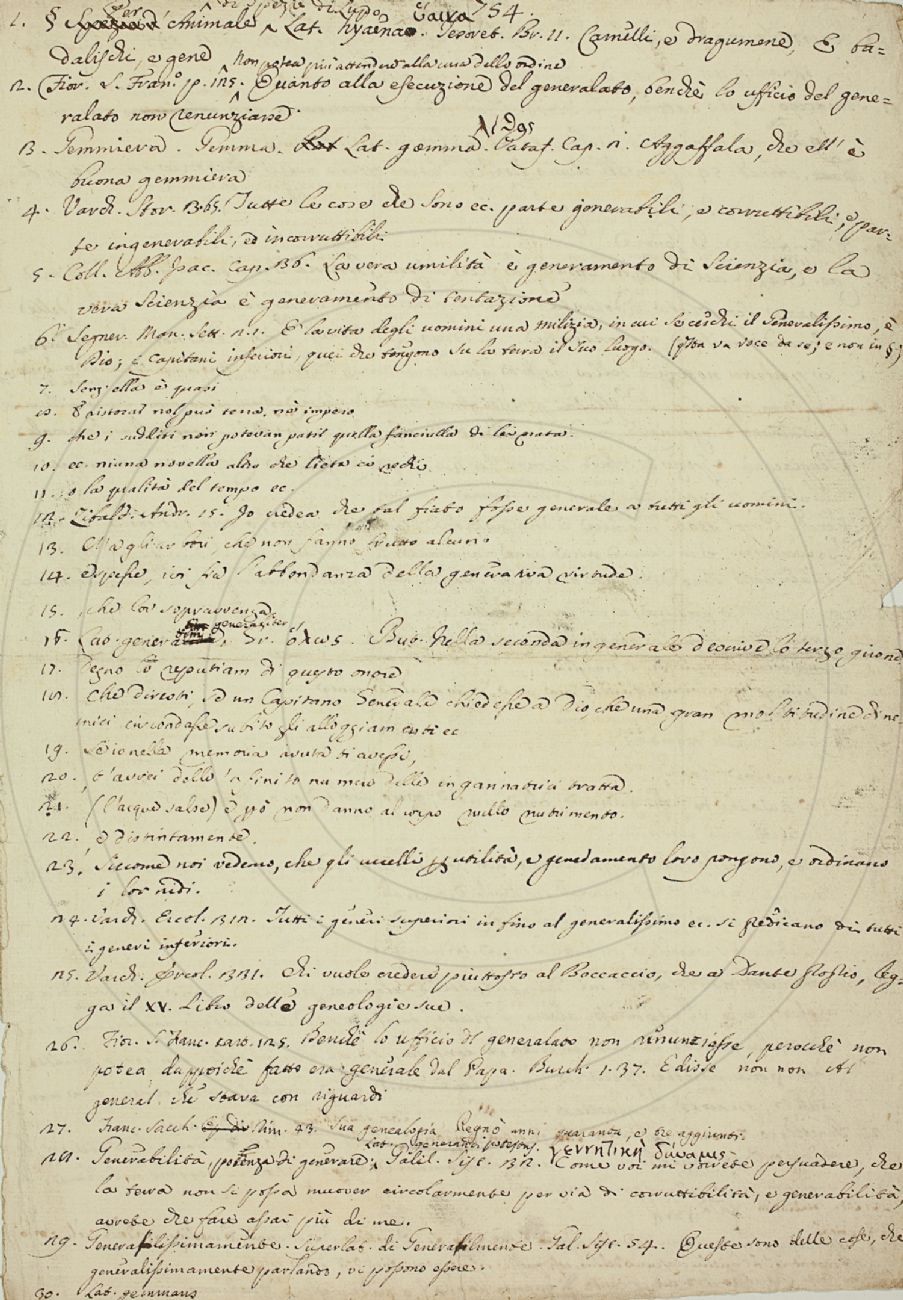 254.
1. § Per Animale di Spezie di Lupo Lat. hyaena. Tesoret. Br. 11. Camelli, e dragumene, E ba=
dalischi, e gene
2. Fior. S. Fran. p. 125. Non potea più attendere alla cura dello ordine Quanto alla esecuzione del generalato, benchè lo ufficio del gene=
ralato non renunziasse
3. Gemmiera. Gemma. Lat. gemma. Pataf. Cap. 1. Aggaffala, che ell'è
buona gemmiera
4. Varch. Stor. Tutte le cose che sono ec. parte generabili, e corruttibili, e par=
te ingenerabili, ed incorruttibili
5. Coll. Ab. Isac. Cap. 36. La vera umilità è generamento di Scienzia, e la
vera Scienzia è generamento di tentazione
6. Segner. Man. Sett. n. 1. E la vita degli uomini una milizia, in cui Siccome il Generalissimo, è
Dio; i Capitani inferiori, quei che tengono Su la terra il Suo luogo. (qsta va voce da se; e non in §.)
7. è quasi
8. nol può terra, nè impero
9. che i sudditi non potevan patir quella fanciulla di lei nata.
10. ec. niuna novella altro che lieta ci
11. o la qualità del tempo ec.
12. Zibald. Andr. 15. Io credea che tal fiato fosse generale a tutti gli uomini.
13. Ma gli arbori, che non fanno frutto alcuno
14. espesse, ivi sia l'abbondanza della generativa virtude.
15. che lor sopravvenga
16. Lat. generaliter, Gr. ὅλως. But. Nella seconda in generale descrive lo terzo girone
17. Degno reputiam di questo onore
18. Che diresti, se un Capitano Generale chiedesse a Dio, che una gran moltitudine di ne=
mici circondasse subito gli alloggiamenti ec
19. Se io nella memoria avuta ti avessi,
20. t'avrei dello 'nfinito numero delle ingannatrici tratta.
21. (l'acque salse) e però non danno al corpo nullo nutrimento.
22. e distintamente.
23. Siccome noi vedemo, che gli uccelli per utilità, e generamento loro pongono, e ordinano
i lor nidi.
24. Varch. Ercol. 312. Tutti i generi superiori in fino al generalissimo ec. si predicano di tutti
i generi inferiori.
25. Varch. Ercol. 331. Chi vuole credere piuttosto al Boccaccio, che a Dante stesso, leg=
ga il XV. Libro delle geneologie sue.
26. Fior. S. Franc. cart. 125. Benchè lo ufficio del generalato non rinunziasse, perocchè non
potea, dappoichè fatto era generale dal Papa. Burch. 1. 37. E disse non non Al
general, che stava con riguardi
27. Franc. Sacch. Rim. 43. Sua genealogia Regnò anni quaranta, e tre aggiunti.
28. Generabilità, potenza di generare; Lat. generandi potestas. γεννητικὴ δύναμις Galil. Sist. 32. Come voi mi vorrete persuadere, che
la terra non si possa muover circolarmente per via di corruttibilità, e generabilità,
avrete che fare assai più di me.
29. Generalissimamente. Superlat. di Generalmente. Gal. Sist. 54. Queste sono delle cose, che
generalissimamente parlando, vi possono essere.
30. Lat. gemmans